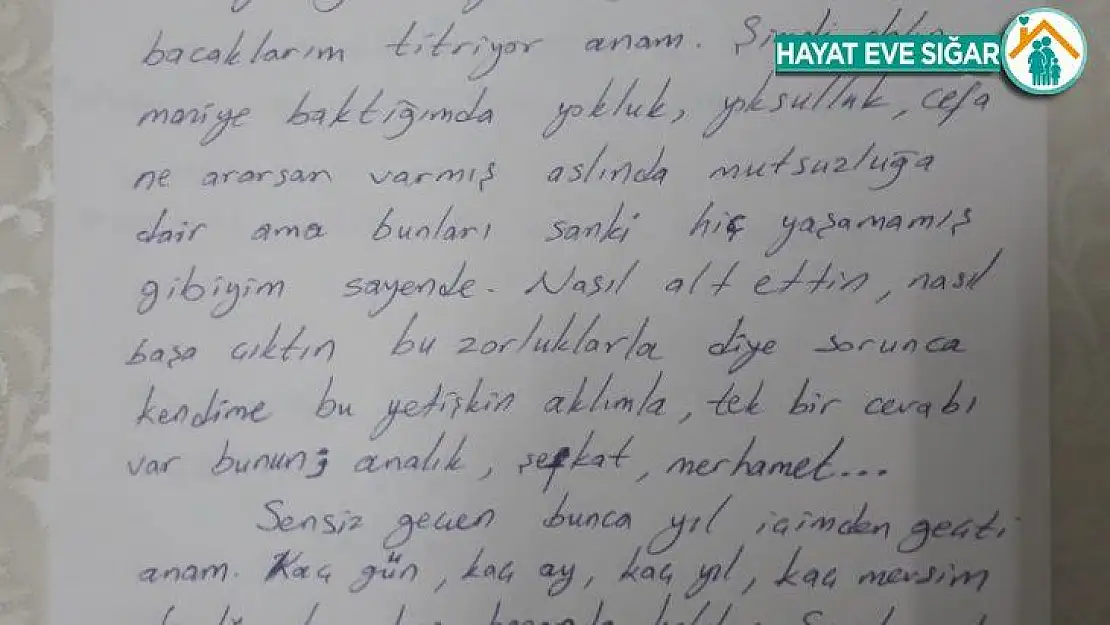 bacaklarım titriyor anam. Şimdi
HAYAT EVE SIĞAR
maziye baktığımda yokluk, yoksulluk, cefa
ne ararsan varmış aslında mutsuzluğa
dair ama bunları sanki hiç yaşamamış
gibiyim sayende. Nasıl alt ettin, nasıl
başa çıktın bu zorluklarla diye sorunca
kendime bu yetişkin aklımla, tek bir cevabı
var bunun; analık, şefkat, merhamet...
Sensiz geçen bunca yıl içimden geçti
anam. Kaç gün, kaç ay, kaç yıl, kaç mevsim